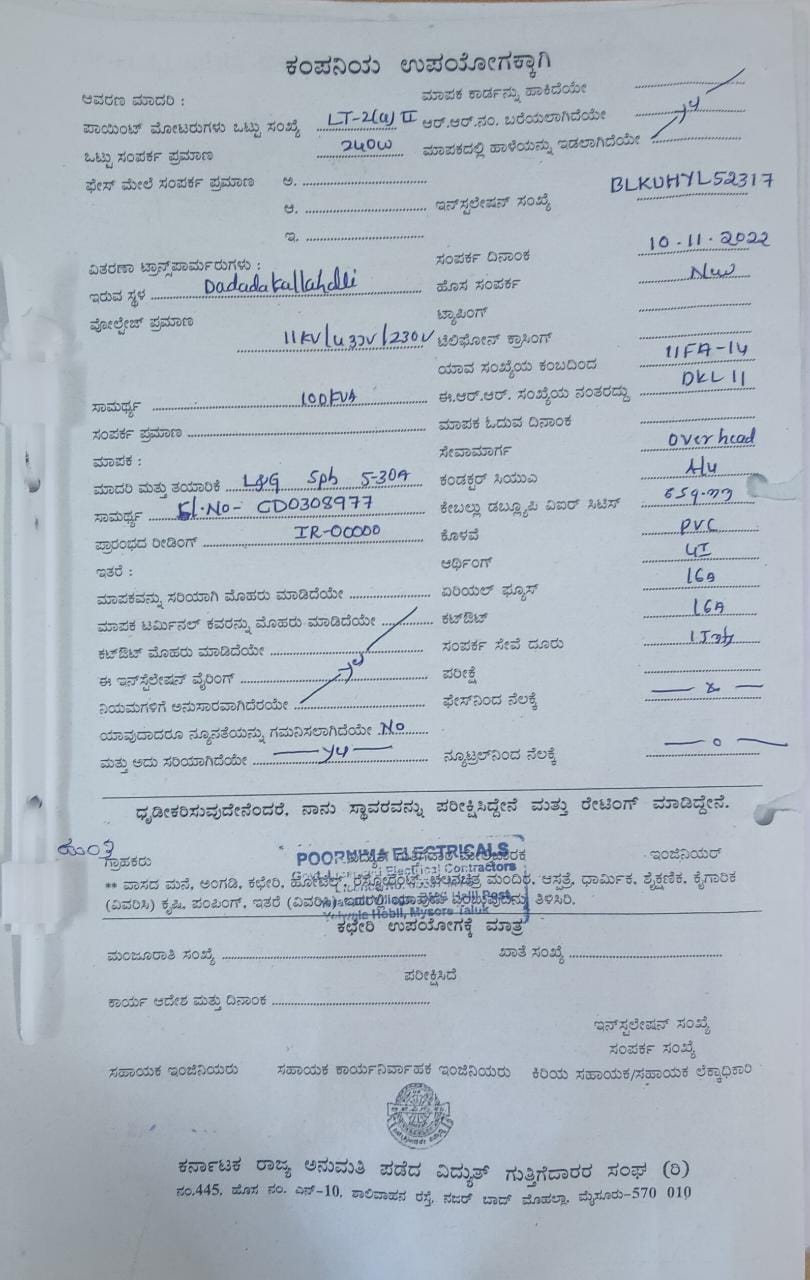 ಕಂಪನಿಯ ಉಪಯೋಗಕ್ಕಾಗಿ
ಆವರಣ ಮಾದರಿ : ಮಾಪಕ ಕಾರ್ಡನ್ನು ಹಾಕಿದೆಯೇ
ಪಾಯಿಂಟ್ ಮೋಟರುಗಳು ಒಟ್ಟು ಸಂಖ್ಯೆ LT-2(a) II ಆರ್.ಆರ್.ನಂ. ಬರೆಯಲಾಗಿದೆಯೇ
ಒಟ್ಟು ಸಂಪರ್ಕ ಪ್ರಮಾಣ 240W ಮಾಪಕದಲ್ಲಿ ಹಾಳೆಯನ್ನು ಇಡಲಾಗಿದೆಯೇ
ಫೇಸ್ ಮೇಲೆ ಸಂಪರ್ಕ ಪ್ರಮಾಣ ಅ.
ಆ. ಇನ್‌ಸ್ಟಲೇಷನ್ ಸಂಖ್ಯೆ BLKUHYL52317
ಇ.
ವಿತರಣಾ ಟ್ರಾನ್ಸ್‌ಫಾರ್ಮರುಗಳು : ಸಂಪರ್ಕ ದಿನಾಂಕ 10.11.2022
ಇರುವ ಸ್ಥಳ Dadadakallahalli ಹೊಸ ಸಂಪರ್ಕ New
ವೋಲ್ಟೇಜ್ ಪ್ರಮಾಣ ಟ್ಯಾಪಿಂಗ್
11KV/433V/230V ಟೆಲಿಫೋನ್ ಕ್ರಾಸಿಂಗ್
ಯಾವ ಸಂಖ್ಯೆಯ ಕಂಬದಿಂದ 11FA-14
ಸಾಮರ್ಥ್ಯ 100KVA ಈ.ಆರ್.ಆರ್. ಸಂಖ್ಯೆಯ ನಂತರದ್ದು DKL 11
ಸಂಪರ್ಕ ಪ್ರಮಾಣ ಮಾಪಕ ಓದುವ ದಿನಾಂಕ
ಮಾಪಕ : ಸೇವಾಮಾರ್ಗ Overhead
ಮಾದರಿ ಮತ್ತು ತಯಾರಿಕೆ L&G Sph 5-30A ಕಂಡಕ್ಟರ್ ಸಿಯುಎ Alu
ಸಾಮರ್ಥ್ಯ Sl.No- GD0308977 ಕೇಬಲ್ಲು ಡಬ್ಲ್ಯೂಪಿ ವಿಐರ್ ಸಿಟಿಸ್
ಪ್ರಾರಂಭದ ರೀಡಿಂಗ್ IR-00000 ಕೊಳವೆ PVC
ಇತರೆ : ಆರ್ಥಿಂಗ್ GI
ಮಾಪಕವನ್ನು ಸರಿಯಾಗಿ ಮೊಹರು ಮಾಡಿದೆಯೇ ಏರಿಯಲ್ ಫ್ಯೂಸ್ 16A
ಮಾಪಕ ಟರ್ಮಿನಲ್ ಕವರನ್ನು ಮೊಹರು ಮಾಡಿದೆಯೇ ಕಟ್‌ಔಟ್ 16A
ಕಟ್‌ಔಟ್ ಮೊಹರು ಮಾಡಿದೆಯೇ ಸಂಪರ್ಕ ಸೇವೆ ದೂರು
ಈ ಇನ್‌ಸ್ಟೆಲೇಷನ್ ವೈರಿಂಗ್ ಪರೀಕ್ಷೆ
ನಿಯಮಗಳಿಗೆ ಅನುಸಾರವಾಗಿದೆರಯೇ ಫೇಸ್‌ನಿಂದ ನೆಲಕ್ಕೆ
ಯಾವುದಾದರೂ ನ್ಯೂನತೆಯನ್ನು ಗಮನಿಸಲಾಗಿದೆಯೇ No
ಮತ್ತು ಅದು ಸರಿಯಾಗಿದೆಯೇ ನ್ಯೂಟ್ರಲ್‌ನಿಂದ ನೆಲಕ್ಕೆ
ಧೃಡೀಕರಿಸುವುದೇನೆಂದರೆ, ನಾನು ಸ್ಥಾವರವನ್ನು ಪರೀಕ್ಷಿಸಿದ್ದೇನೆ ಮತ್ತು ರೇಟಿಂಗ್ ಮಾಡಿದ್ದೇನೆ.
ಗ್ರಾಹಕರು POORNIMA ELECTRICALS ಇಂಜಿನಿಯರ್
Electrical Contractors
** ವಾಸದ ಮನೆ, ಅಂಗಡಿ, ಕಛೇರಿ, ಹೋಟೆಲ್, ರೆಸ್ಟೋರೆಂಟ್, ಚಲನಚಿತ್ರ ಮಂದಿರ, ಆಸ್ಪತ್ರೆ, ಧಾರ್ಮಿಕ, ಶೈಕ್ಷಣಿಕ, ಕೈಗಾರಿಕ
(ವಿವರಿಸಿ) ಕೃಷಿ, ಪಂಪಿಂಗ್, ಇತರೆ (ವಿವರಿಸಿ) ಇದರಲ್ಲಿ ಯಾವುದು ಎಂಬುವುದನ್ನು ತಿಳಿಸಿರಿ.
Yelwala Hobli, Mysore Taluk
ಕಛೇರಿ ಉಪಯೋಗಕ್ಕೆ ಮಾತ್ರ
ಮಂಜೂರಾತಿ ಸಂಖ್ಯೆ ಖಾತೆ ಸಂಖ್ಯೆ
ಪರೀಕ್ಷಿಸಿದೆ
ಕಾರ್ಯ ಆದೇಶ ಮತ್ತು ದಿನಾಂಕ
ಇನ್‌ಸ್ಟಲೇಷನ್ ಸಂಖ್ಯೆ
ಸಂಪರ್ಕ ಸಂಖ್ಯೆ
ಸಹಾಯಕ ಇಂಜಿನಿಯರು ಸಹಾಯಕ ಕಾರ್ಯನಿರ್ವಾಹಕ ಇಂಜಿನಿಯರು ಕಿರಿಯ ಸಹಾಯಕ/ಸಹಾಯಕ ಲೆಕ್ಕಾಧಿಕಾರಿ
ಕರ್ನಾಟಕ ರಾಜ್ಯ ಅನುಮತಿ ಪಡೆದ ವಿದ್ಯುತ್ ಗುತ್ತಿಗೆದಾರರ ಸಂಘ (ರಿ)
ನಂ.445, ಹೊಸ ನಂ. ಎನ್-10, ಶಾಲಿವಾಹನ ರಸ್ತೆ, ನಜರ್ ಬಾದ್ ಮೊಹಲ್ಲಾ, ಮೈಸೂರು-570 010